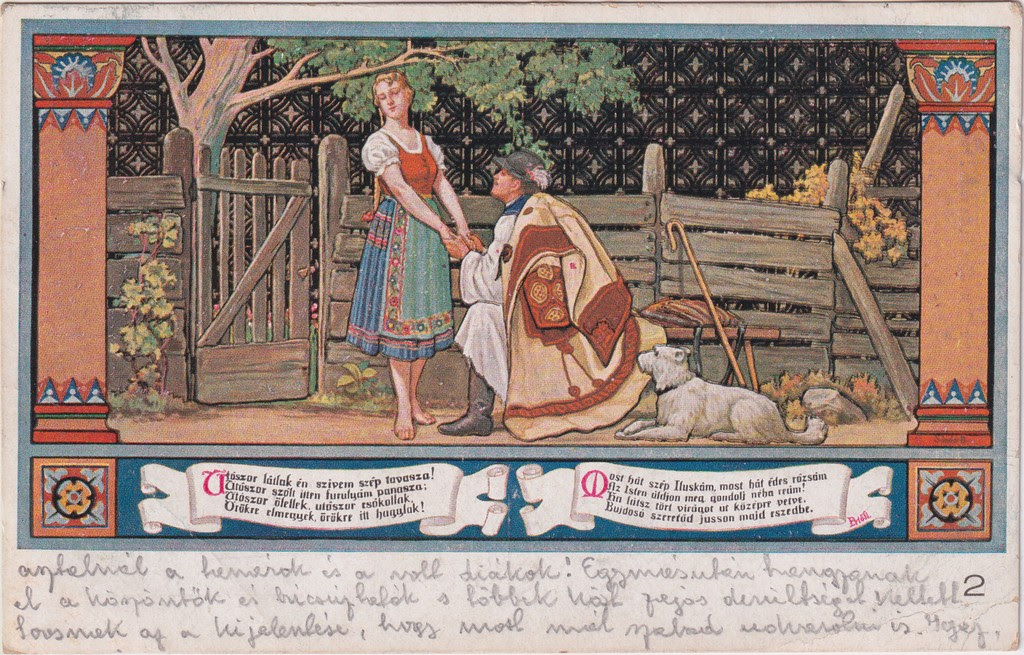 Utószor látlak én szivem szép tavasza!
Utószor szólt itten furulyám panasza;
Utószor ölellek, utószor csókollak,
Örökre elmegyek, örökre itt hagylak!
Most hát szép Iluskám, most hát édes rózsám
Az Isten áldjon meg, gondolj néha reám!
Ha látsz tört virágot út közepre vetve,
Bujdosó szeretőd jusson majd eszedbe.
Petőfi.
asztalnál a tanárok és a volt diákok! Egymásután hangzanak
2
el a köszöntők és búcsúbeszédek s többek közt nagy derültséget keltett
Soósnak az a kijelentése, hogy most már szabad udvarolni is. Igaz,